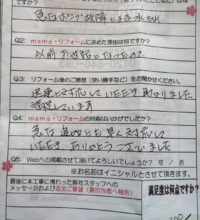 急なポンプ故障による水もれ
Q2: mama・リフォームに決めた理由は何ですか?
以前お世話になったので
Q3: リフォーム後のご感想(使い勝手など)をお聞かせください。
迅速に対応していただき助かりました
満足しています
Q4: mama・リフォームの対応はいかがでしたか?
急な連絡にも早く対応して
いただきありがとうございました
Q5: Webへの掲載させて頂いてよろしいでしょうか? 可 / 否
※お名前はイニシャルとさせて頂きます。
最後に本工事に携わった弊社スタッフへの
メッセージおよび
満足度は何点ですか?
100